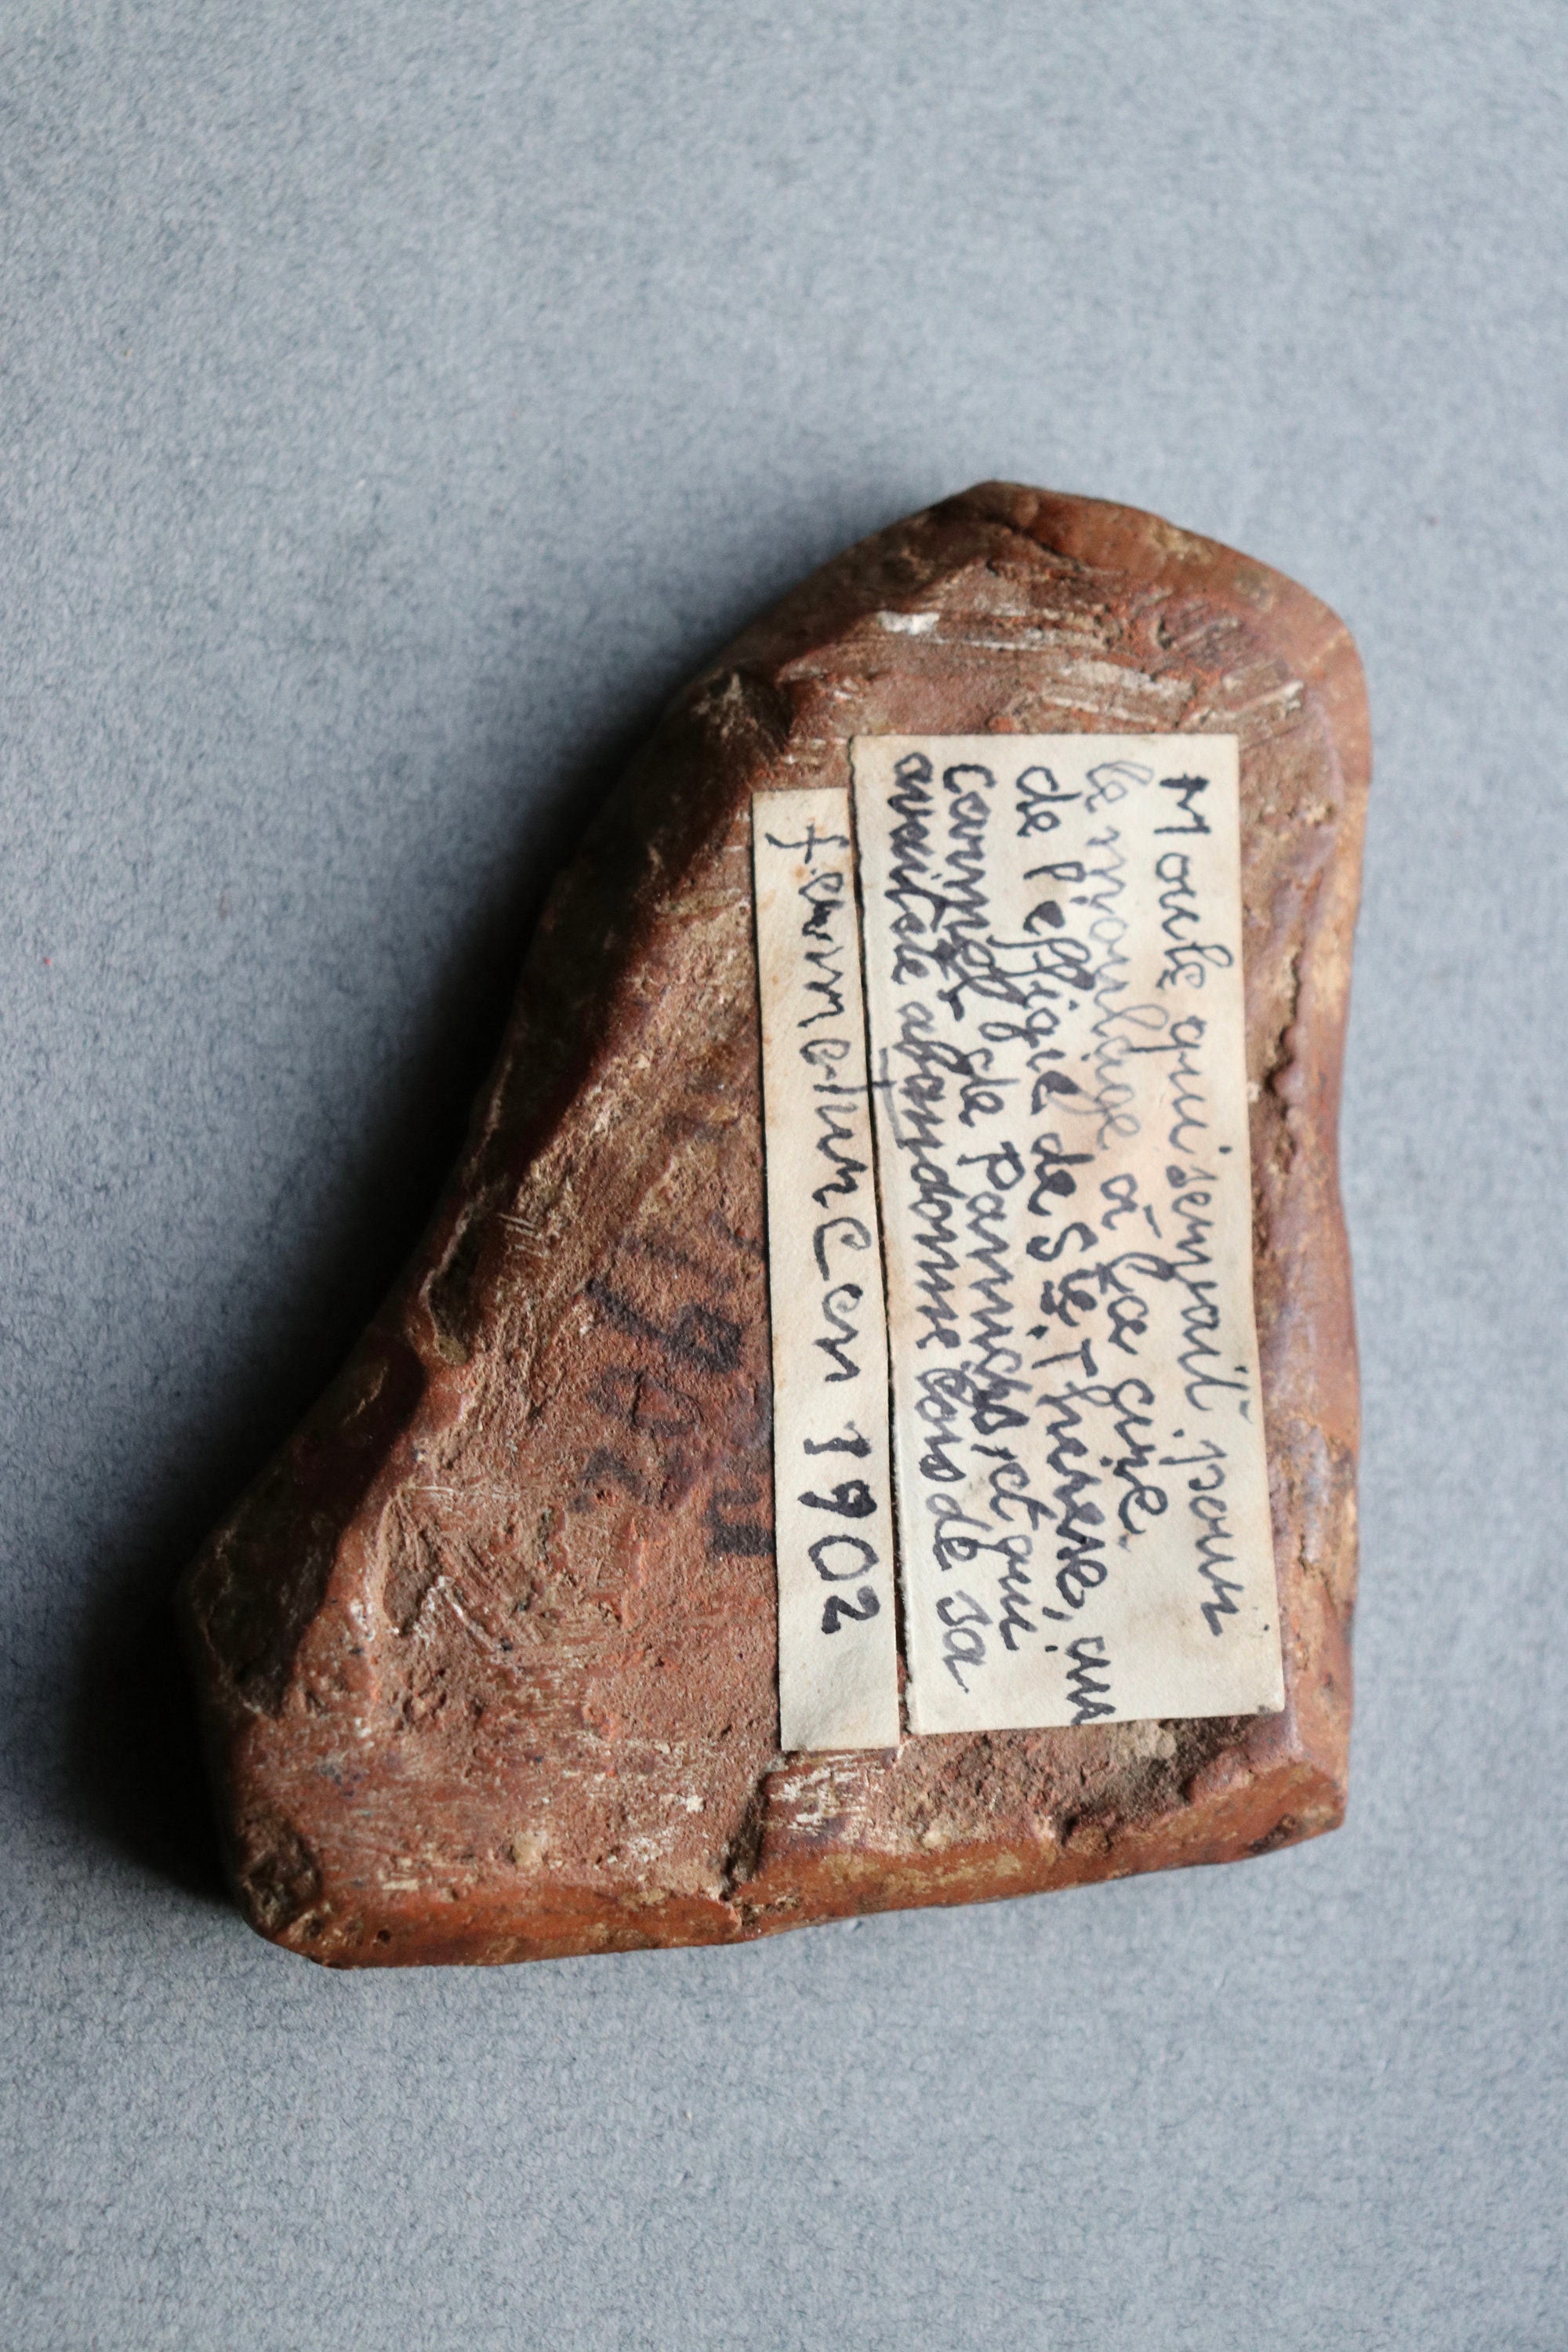 Moule qui servait pour
le moulage à la cire
de l'effigie de Ste. Thérèse, au
Carmel de Pamiers, et qui
aurait été abandonné lors de sa
fermeture en 1902